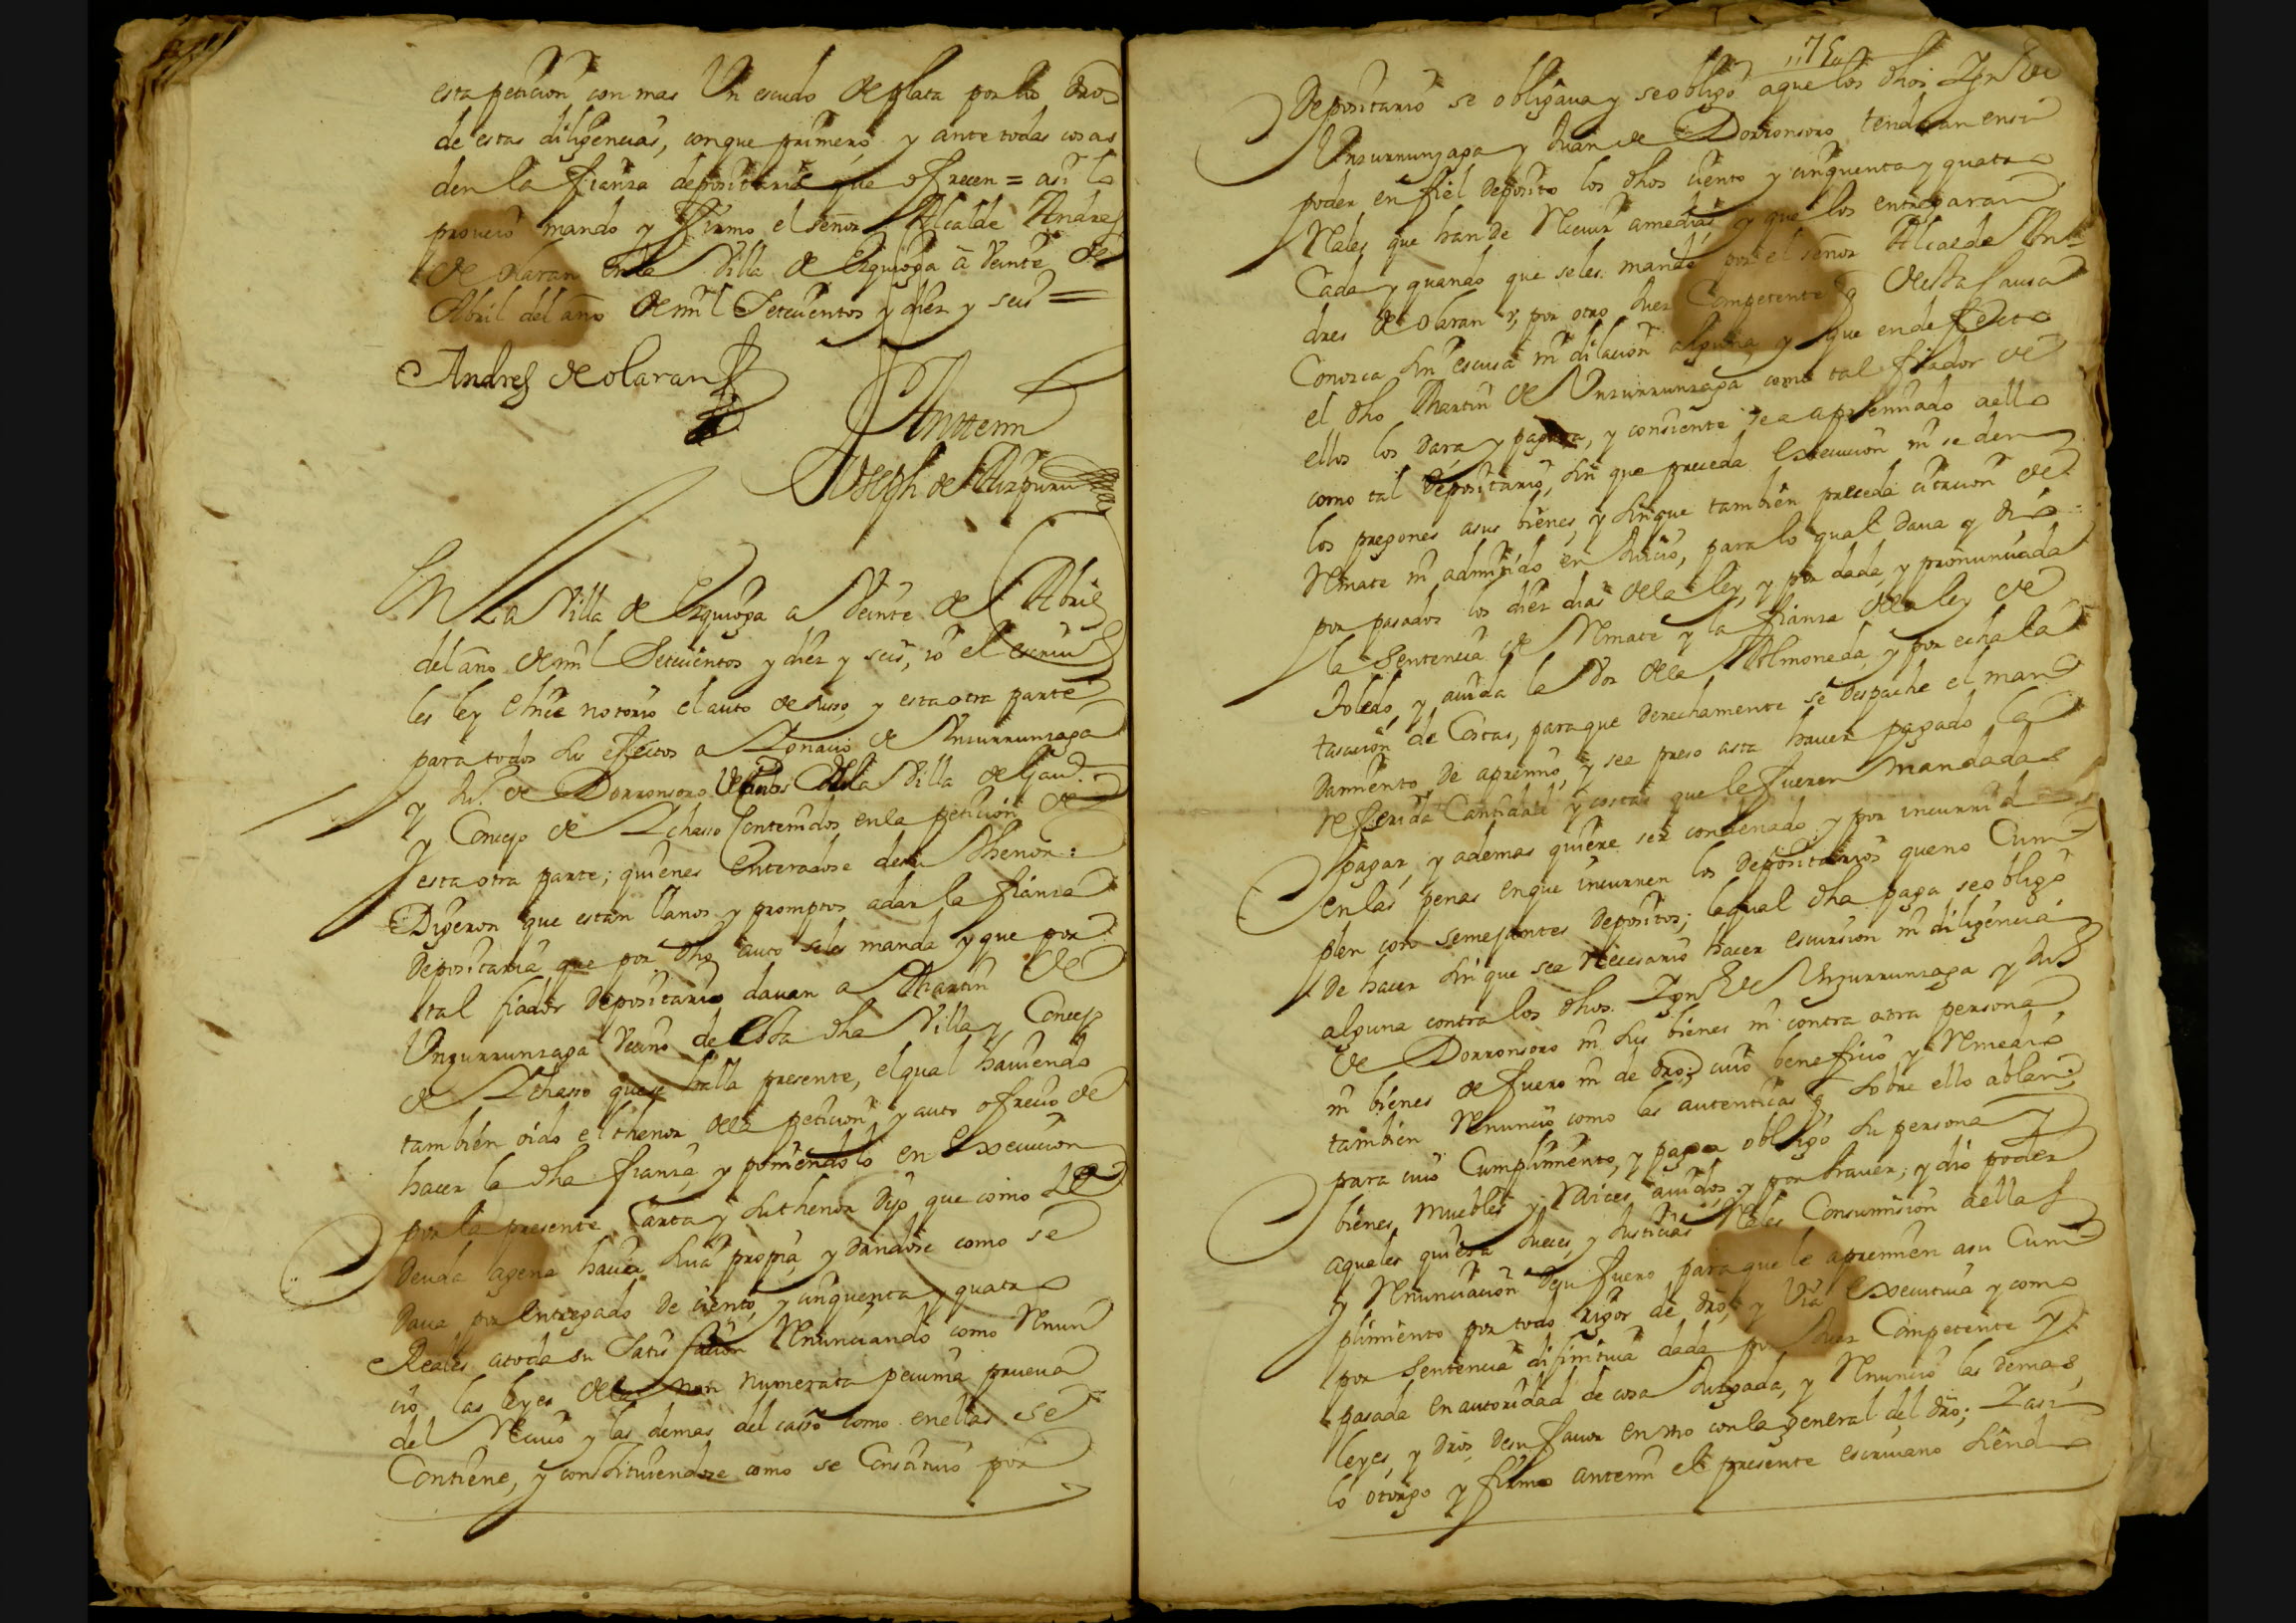 esta peticion con mas Un escudo de plata por los dros
de estas diligencias, conque primero y ante todas cosas
den la fianza depositaria que ofrecen = asi lo
proueio mando y firmo el señor Alcalde Andres
de olaran en la Villa de Ezquioga a Veinte de
Abril del año de mil Setecientos y diez y seis =
Andres de olaran
Antemi
Joseph de Aizpuru
En La Villa de Ezquioga a Veinte de Abril
del año de mil Setecientos y diez y seis, io el escriu
les ley e hice notorio el auto de suso, y esta otra parte
para todos sus efectos a Ignacio de Unzurrunzaga
y Ju. de Dorronsoro Vecinos de la Villa de Gau.
y Concejo de Ichasso Contenidos en la peticion de
esta otra parte; quienes Enteradose de su thenor:
Digeron que estan llanos y promptos a dar la fianza
Depositaria que por dho auto se les manda y que por
tal fiador Depositario dauan a Martin de
Unzurrunzaga Vecino de Esta dha Villa y Concejo
de Ichasso que se halla presente, el qual hauiendo
tambien oido el thenor de la peticion y auto ofrecio de
hacer la dha fianza, y poniendolo en Execucion
por la presente Carta y su thenor Dijo que como de
Deuda agena hauia sua propia, y dandose como se
Daua por Entregado de ciento, y cinquenta y quatro
Reales a toda su Satisfacion Renunciando como Renun
cio las leyes de la non numerata pecunia prueua
del Reciuo y las demas del casso como en ellas se
Contiene, y constituiendose como se Constituio por
Depositario se obligaua y se obligo a que los dhos Ign de
Unzurrunzaga y Juan de Dorronsoro tendran en su
poder en fiel deposito los dhos ciento y cinquenta y quatro
Reales que han de Reciuir a medias, y que los entregaran
Cada y quando que se les mande por el señor Alcalde An
dres de olaran y por otro Juez Competente q de esta Causa
Conozca sin escusa ni dilacion alguna y que en defecto
el dho Martin de Unzurrunzaga como tal fiador de
ellos los Dara, y pagara, y consiente sea apremiado a ello
como tal Depositario, sin que preceda Execucion ni se den
los pregones a sus bienes, y sin que tambien preceda citacion de
Remate ni admitido en Juicio, para lo qual Daua y dio
por pasados los diez dias de la ley, y por dada, y pronunciada
la Sentencia de Remate y la fianza de la ley de
Toledo, y auida la Voz de la Almoneda, y por echa la
tasacion de Costas, para que Derechamente se Despache el man
Damiento De apremio, y sea preso asta hauer pagado la
Referida Cantidad y costas que le fueren Mandadas
pagar, y ademas quiere ser condenado y por incurrido
en las penas en que incurren los Depositarios que no Cum
plen con semejantes Depositos; la qual dha paga se obligo
De hacer sin que sea Necesario hacer escursion ni diligencia
alguna contra los dhos Ign de Unzurrunzaga y Ju
de Dorronsoro ni sus bienes ni contra otra persona
ni bienes de fuero ni de dro; cuio beneficio y Remedio
tambien Renuncio como las autenticas q sobre ello ablan;
para cuio Cumplimiento, y paga obligo su persona y
bienes muebles y Raices, auidos y por hauer; y dio poder
a quales quiera Jueces, y Justicias Reales Con sumision a ellas
y Renunciacion de su fuero para que le apremien a su Cum
plimiento por todo rigor de dro, y Via Executiua y como
por Sentencia difinitiua dada por Juez Competente y
pasada en autoridad de cosa Juzgada, y Renuncio las demas
leyes, y dros de su fauor en uno con la general del dro; I asi
lo otorgo y firmo antemi el presente escriuano siendo